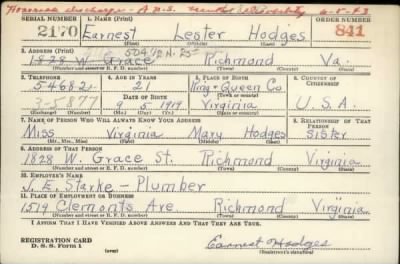 Honorable discharge - A.U.S. 6-5-43
SERIAL NUMBER 1. NAME (Print) ORDER NUMBER
2170 Earnest Lester Hodges 841
(First) (Middle) (Last)
504 1/2 N. 25
2. ADDRESS (Print)
1828 W. Grace Richmond Va.
(Number and street or R. F. D. number) (Town) (County) (State)
3. TELEPHONE 4. AGE IN YEARS 5. PLACE OF BIRTH 6. COUNTRY OF CITIZENSHIP
54682 21 King & Queen Co
DATE OF BIRTH (Town or county)
3-5877 9 5 1919 Virginia U.S.A.
(Exchange) (Number) (Mo.) (Day) (Yr.) (State or country)
7. NAME OF PERSON WHO WILL ALWAYS KNOW YOUR ADDRESS 8. RELATIONSHIP OF THAT PERSON
Miss Virginia Mary Hodges Sister
(Mr., Mrs., Miss) (First) (Middle) (Last)
9. ADDRESS OF THAT PERSON
1828 W. Grace St. Richmond Virginia
(Number and street or R. F. D. number) (Town) (County) (State)
10. EMPLOYER'S NAME
J. E. Starke - Plumber
11. PLACE OF EMPLOYMENT OR BUSINESS
1519 Clemonts Ave. Richmond Virginia
(Number and street or R. F. D. number) (Town) (County) (State)
I AFFIRM THAT I HAVE VERIFIED ABOVE ANSWERS AND THAT THEY ARE TRUE.
REGISTRATION CARD
D. S. S. Form 1 (over) Earnest Hodges
(Registrant's signature)